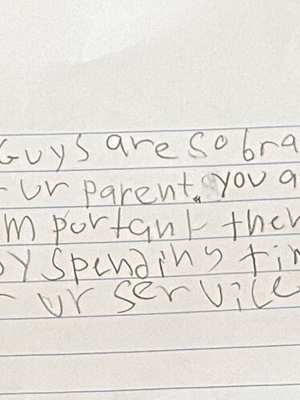 Guys are so bra
ur parent. you a
mportant ther
by spending tim
ur service